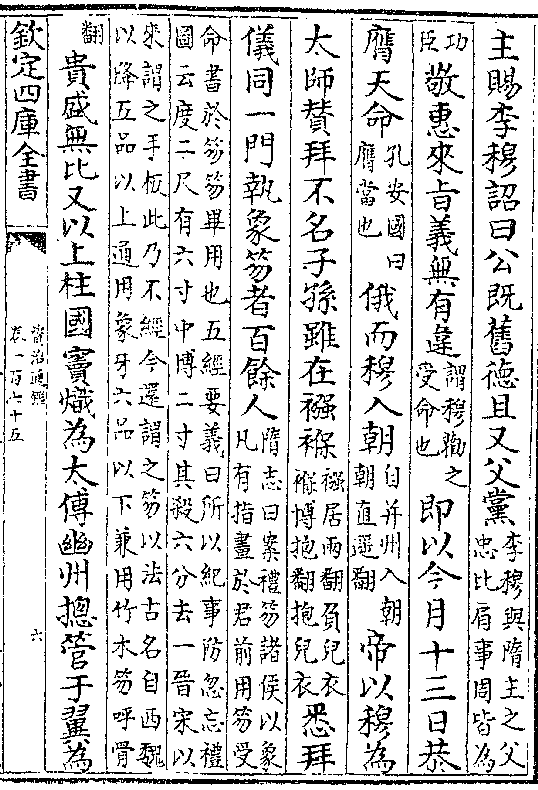 主賜李穆詔曰公既舊德且又父黨李穆與隋主之父
忠比肩事周皆為
功
臣敬惠來旨義無有違謂穆勸之
受命也即以今月十三日恭
膺天命孔安國曰
膺當也俄而穆入朝自并州入朝
朝直遥翻帝以穆為
太師贊拜不名子孫雖在襁褓襁居兩翻負兒衣
褓博抱翻抱兒衣悉拜
儀同一門執象笏者百餘人隋志曰案禮笏諸侯以象
凡有指畫於君前用笏受
命書於笏笏畢用也五經要義曰所以紀事防忽忘禮
圖云度二尺有六寸中博二寸其殺六分去一晉宋以
來謂之手板此乃不經今還謂之笏以法古名自西魏
以降五品以上通用象牙六品以下兼用竹木笏呼骨
翻貴盛無比又以上柱國竇熾為太傅幽州揔管于翼為
欽定四庫全書
資治通鑑
卷一百七十五
六